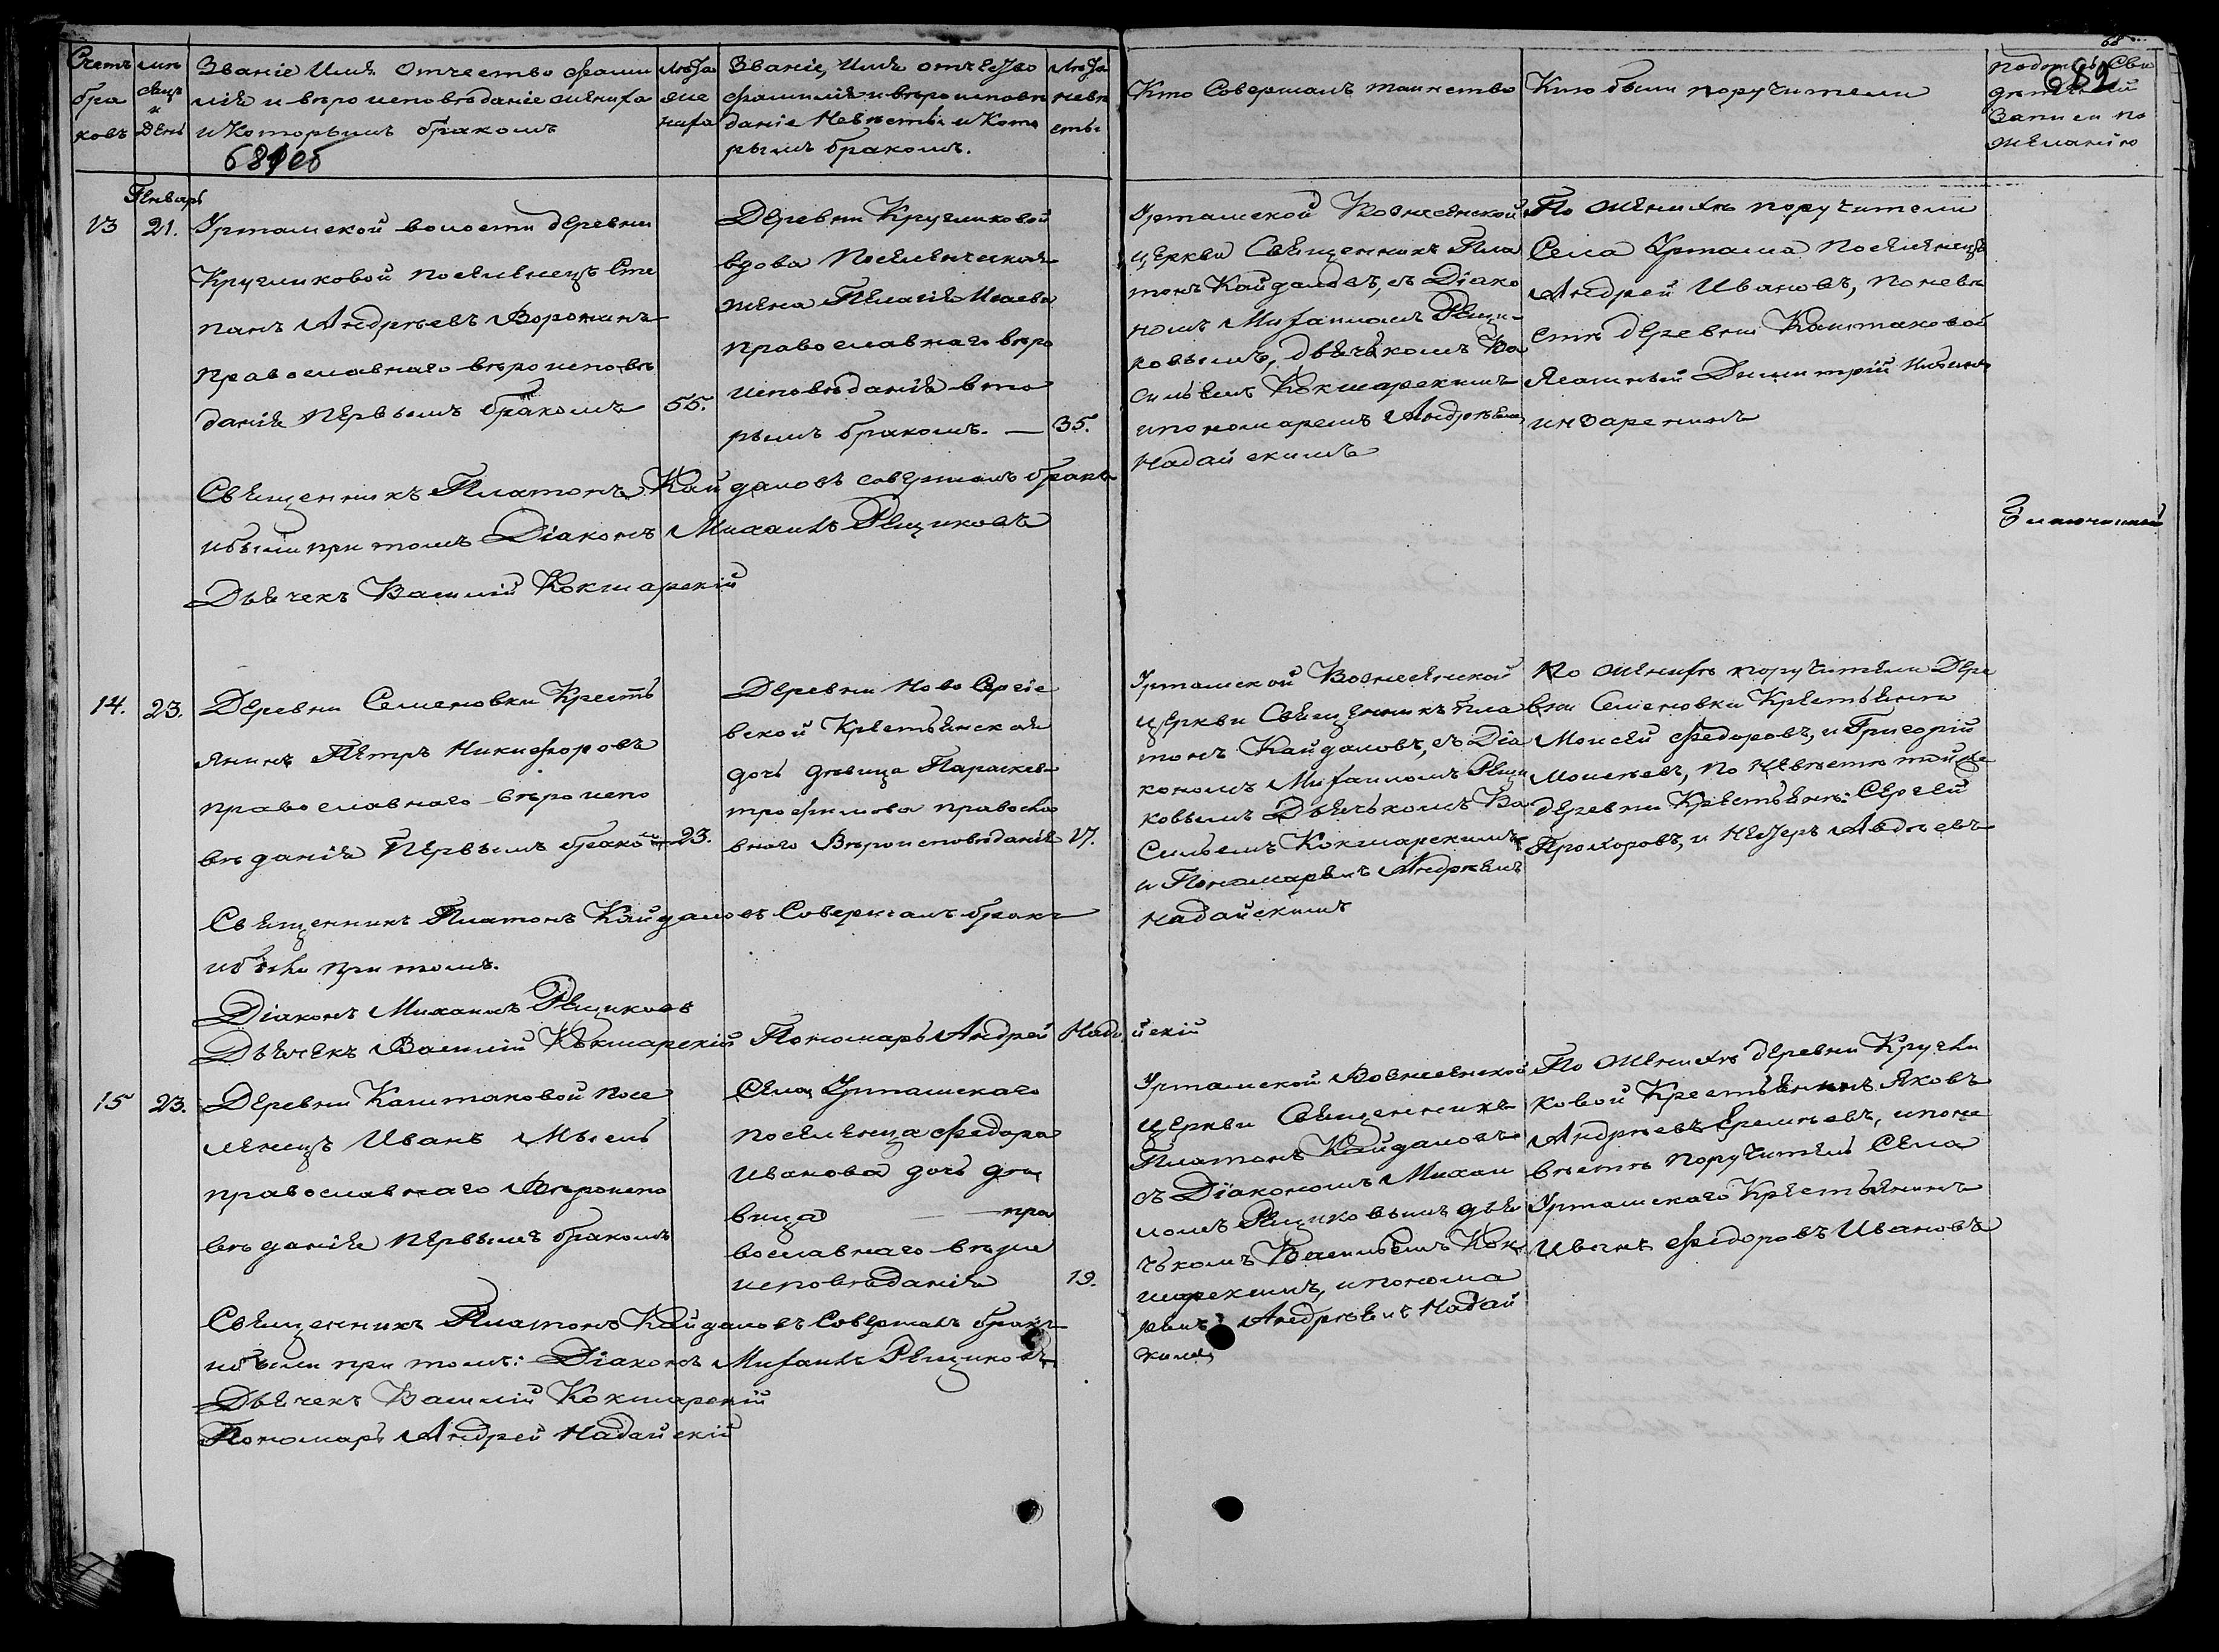 Счетъ
бра
ковъ
мѣ
сяцъ
и
День
Званіе Имя Отчество фами
лія и вѣроисповѣданіе жениха
и Которымъ бракомъ
681об
Лѣта
же
ниха
Званіе, Имя отчество
фамилія и вѣроисповѣ
даніе Невѣсты и Кото
рымъ бракомъ.
Лѣта
невѣ
сты
Кто Совершалъ таинство
Кто были поручители
682
Подпись Сви
дѣтелей
Записи по
желанію
Январь
13
21.
Уртамской волости деревни
Кругликовой поселенецъ Сте
панъ Андреевъ Воронинъ
православнаго вѣроисповѣ
данія первымъ бракомъ
55.
Деревни Кругликовой
вдова Поселенческая
жена Пелагія Исаева
православнаго вѣро
исповѣданія вто
рымъ бракомъ. —
35.
Уртамской Вознесенской
церкви Священникъ Пла
тонъ Кайдаловъ, съ Діако
номъ Михаиломъ Рещи-
ковымъ, дьячькомъ Ва
сильемъ Кокшарскимъ
и пономаремъ Андреемъ
Надайскимъ
По женихѣ поручители
Села Уртама поселенецъ
Андрей Ивановъ, по невѣ
стѣ деревни Каштаковой
Ясашный Димитрій
Священникъ Платонъ Кайдаловъ совершалъ бракъ
и были при томъ Діаконъ Михаилъ Рещиковъ
Дьячекъ Василій Кокшарскій
14.
23.
Деревни Семеновки Кресть
янинъ Петръ Никифоровъ
православнаго вѣроиспо
вѣданія Первымъ бракомъ
23.
Деревни Ново Сергіе
вской Крестьянская
дочь дѣвица Параскев-
трофимова правосла
внаго Вѣроисповѣданія
17.
Уртамской Вознесенской
церкви Священникъ Пла
тонъ Кайдаловъ, съ Діа
кономъ Михаиломъ Рещи
ковымъ Дьячькомъ Ва
сильемъ Кокшарскимъ
и Пономаремъ Андреемъ
Надайскимъ
По женихѣ поручители Дере
вни Семеновки Крестьяни
Моисей Федоровъ, и Григорій
Моисеевъ, по невѣстѣ той же
деревни Крестьянъ: Сергей
Прохоровъ, и Несторъ Авдеевъ
Священникъ Платонъ Кайдаловъ Совершалъ бракъ
и были при томъ.
Діаконъ Михаилъ Рещиковъ
Дьячекъ Василій Кокшарскій Пономарь Андрей Надайскій
15
23.
Деревни Каштаковой посе
ленецъ Иванъ
православнаго Вѣроиспо
вѣданія первымъ бракомъ
Села Уртамскаго
поселенца Федора
Иванова дочь дѣ
вица — пра
вославнаго вѣро
исповѣданія
19.
Уртамской Вознесенской
церкви Священникъ
Платонъ Кайдаловъ
съ Діакономъ Михаи
ломъ Рещиковымъ дья
чькомъ Васильемъ Кок
шарскимъ, и понома
ремъ Андреемъ Надай
скимъ
По женихѣ деревни Кругли
ковой Крестьянинъ Яковъ
Андреевъ Еремѣевъ, и по не
вѣстѣ поручитель Села
Уртамскаго Крестьянинъ
Иванъ Федоровъ Ивановъ
Священникъ Платонъ Кайдаловъ Совершалъ бракъ
и были при томъ: Діаконъ Михаилъ Рещиковъ
Дьячекъ Василій Кокшарскій
Пономарь Андрей Надайскій